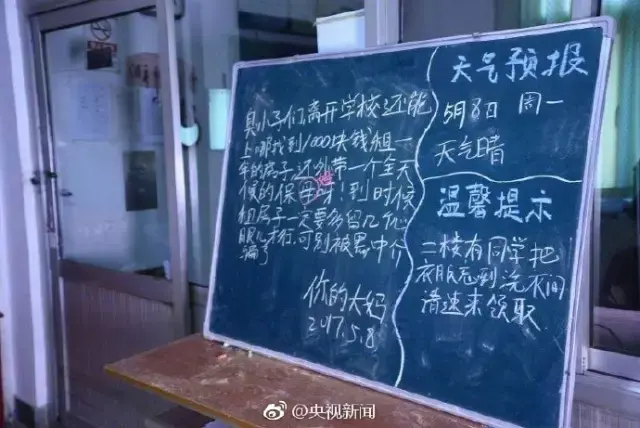 臭小子们,离开学校还能
上哪找到1000块钱租一
年的房子还外带一个全天
候的保姆呀!到时候
租房子一定要多留几个心
眼儿才行,可别被黑中介
骗了
你的大妈
2017.5.8
天气预报
5月8日 周一
天气晴
温馨提示
二楼有同学把
衣服忘到洗衣间
请速来领取
@央视新闻